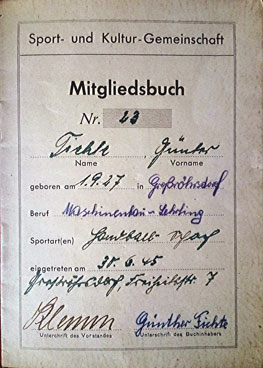 Sport- und Kultur-Gemeinschaft
Mitgliedsbuch
Nr. 23
Günter
Name Vorname
geboren am 1.9.27 in Großröhrsdorf
Beruf Maschinenbau-Lehrling
Sportart(en) Handball - Schach
eingetreten am 30.6.45
Großröhrsdorf, 7
Klemm Günther
Unterschrift des Vorstandes Unterschrift des Buchinhabers